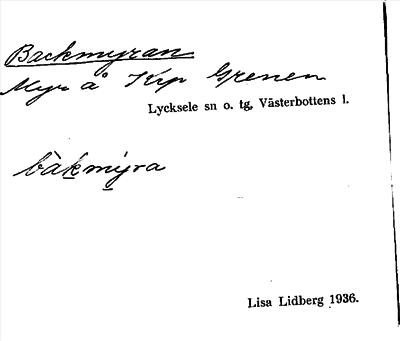 Backmyran
Myr å Krp Grenen
Lycksele sn o. tg, Västerbottens l.
bàkmýra
Lisa Lidberg 1936.